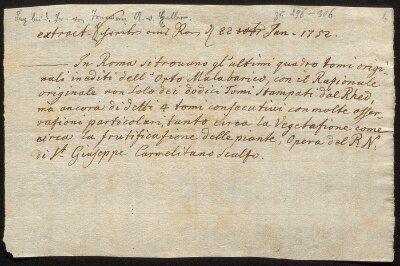 extract Rom 22 Jan. 1752.
In Roma si trovano gl'ultimi quadro tomi origi-
nali inediti dell' Orto Malabarico, con il Rasionale
originale non solo dei dodici Tomi stampati dal Rhed,
ma ancora di detti 4 tomi consecutivi con molte osser-
vazioni particolari, tanto circa la Vegetasione come
circa la frutificasione delle piante, Opera del P. N.
di Sta Giuseppe Carmelitano scalso.